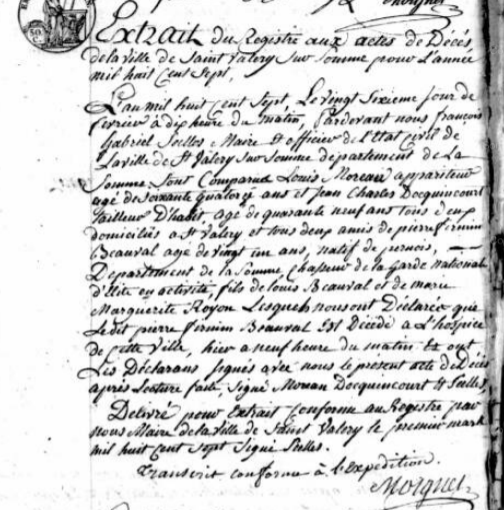 Extrait du Registre aux actes de Décès
de la ville de Saint Valery sur Somme pour l'année
mil huit Cent Sept,
L'an mil huit Cent Sept, Le vingt Sixieme jour de
fevrier à dix heure du matin, Pardevant nous françois
Gabriel Maire et officier de l'Etat civil de
La ville de St Valery Sur Somme departement de La
Somme, Sont Comparus Louis Moreau appariteur
agé de Soixante quatorze ans et Jean Charles Docquincourt
tailleur D'habit, agé de quarante neuf ans tous deux
domiciliés a St Valery et tous deux amis de pierre firmin
Beauval agé de vingt un ans, natif de pernois,
Departement de la Somme, Chasseur de la Garde national
d'Elite en activité, fils de Louis Beauval et de marie
Marguerite Royon Lesquels nous ont Déclarée que
Le dit pierre firmin Beauval Est Décédé a L'hospice
de Cette Ville, hier a neuf heure du matin Et ont
Les Déclarans Signés avec nous le present acte de Décès
après Lecture faite, Signé Docquincourt et
Delivré pour Extrait Conforme au Registre par
nous Maire de la ville de Saint Valery le premier mars
mil huit cent Sept Signé
Transcrit conforme à l'Expédition.
Morgnet